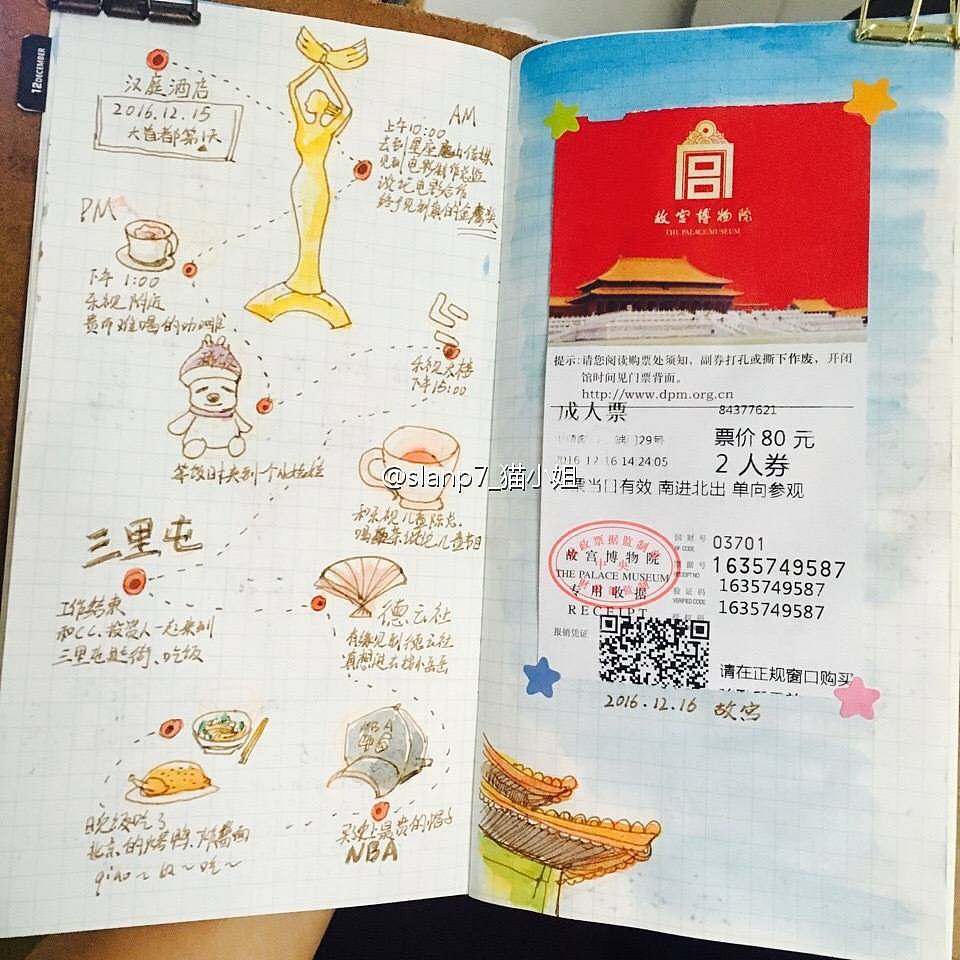 12 DECEMBER
汉庭酒店
2016.12.15
大首都第1天
AM
上午10:00
去到星座
见到电影制作总监
谈论电影合作
终于见到真的金鹰奖
PM
下午 1:00
乐视 附近
贵而难喝的咖啡.
乐视大楼
下午15:00
等饭时来到一个小
@slanp7_猫小姐
和乐视儿童陈龙,
儿童节目
三里屯
工作结束
和CC、投资人一起来到
三里屯逛街、吃饭
德云社
有缘见到德云社
真想进去找小岳岳
晚饭吃了
北京的烤鸭、炸酱面
好~好~吃~
NBA
买史上最贵的帽子
NBA
故宫博物院
THE PALACE MUSEUM
提示:请您阅读购票处须知，副券打孔或撕下作废，开闭
馆时间见门票背面。
http://www.dpm.org.cn
成人票
84377621
29号
票价 80 元
2016 12 16 14:24:05
2 人券
票当日有效 南进北出 单向参观
故宫博物院
THE PALACE MUSEUM
专用收据
RECEIPT
报销凭证
03701
1635749587
1635749587
1635749587
请在正规窗口购买
2016.12.16 故宫